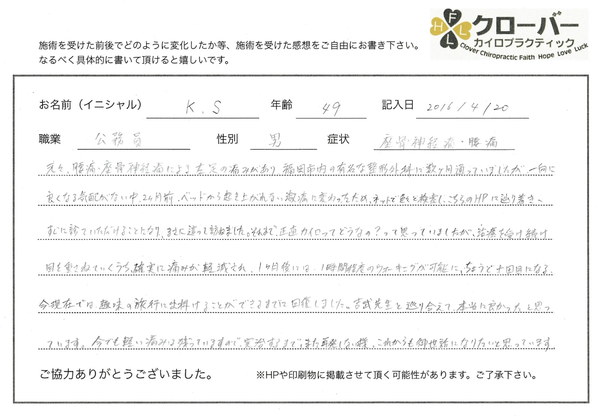 FLLH
クローバー
カイロプラクティック
Clover Chiropractic Faith Hope Love Luck
施術を受けた前後でどのように変化したか等、施術を受けた感想をご自由にお書き下さい。
なるべく具体的に書いて頂けると嬉しいです。
お名前（イニシャル） K.S 年齢 49 記入日 2016/4/20
職業 公務員 性別 男 症状 座骨神経痛・腰痛
元々、腰痛・座骨神経痛による左足の痛みがあり 福岡市内の有名な整形外科に数ヶ月通っていましたが 一向に
良くなる気配がない中、2ヶ月前、ベッドから起き上がれない激痛に変わったため、ネットで色々と検索し、こちらのHPに辿り着き、
に診ていただけることになり、まさに這って訪ねました。それまで、正直カイロってどうなの？って思っていましたが、治療を受け続け
回を重ねていくうち、確実に痛みが軽減され、1ヶ月後には、1時間程度のウォーキングが可能に、ちょうど十回目になる
今現在では趣味の旅行に出掛けることができるまでに回復しました。吉武先生と巡り合えて、本当に良かったと思っ
ています。今でも軽い痛みは残っていますので完治するまで、また再発しない様、これからも御世話になりたいと思っています
ご協力ありがとうございました。 ※HPや印刷物に掲載させて頂く可能性があります。ご了承下さい。